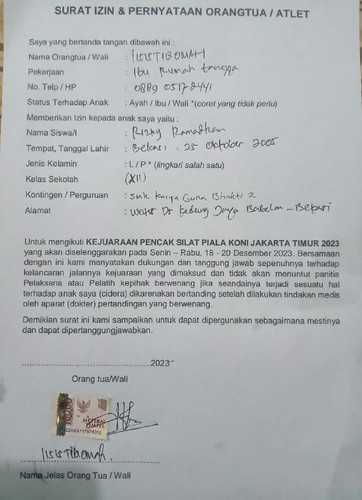 SURAT IZIN & PERNYATAAN ORANGTUA / ATLET
Saya yang bertanda tangan dibawah ini :
Nama Orangtua / Wali : ISISTIBOMAH
Pekerjaan : Ibu Rumah tangga
No. Telp / HP : 0889 0517 2441
Status Terhadap Anak : Ayah / Ibu / Wali *(coret yang tidak perlu)
Memberikan Izin kepada anak saya yaitu :
Nama Siswa/I : Rizky Ramadhan
Tempat, Tanggal Lahir : Bekasi, 25 Oktober 2005
Jenis Kelamin : L / P * (lingkari salah satu)
Kelas Sekolah (XII)
Kontingen / Perguruan : Smk Karya Guna Bhakti 2
Alamat : Dr Kedung Jaya Babelan - Bekasi
Untuk mengikuti KEJUARAAN PENCAK SILAT PIALA KONI JAKARTA TIMUR 2023
yang akan diselenggarakan pada Senin – Rabu, 18 - 20 Desember 2023. Bersamaan
dengan ini kami menyatakan dukungan dan tanggung jawab sepenuhnya terhadap
kelancaran jalannya kejuaraan yang dimaksud dan tidak akan menuntut panitia
Pelaksana atau Pelatih kepihak berwenang jika seandainya terjadi sesuatu hal
terhadap anak saya (cidera) dikarenakan bertanding setelah dilakukan tindakan medis
oleh aparat (dokter) pertandingan yang berwenang.
Demikian surat ini kami sampaikan untuk dapat dipergunakan sebagaimana mestinya
dan dapat dipertanggungjawabkan.
............................2023
Orang tua/Wali
METERAI
TEMPEL
ISISTIBOMAH.
Nama Jelas Orang Tua / Wali